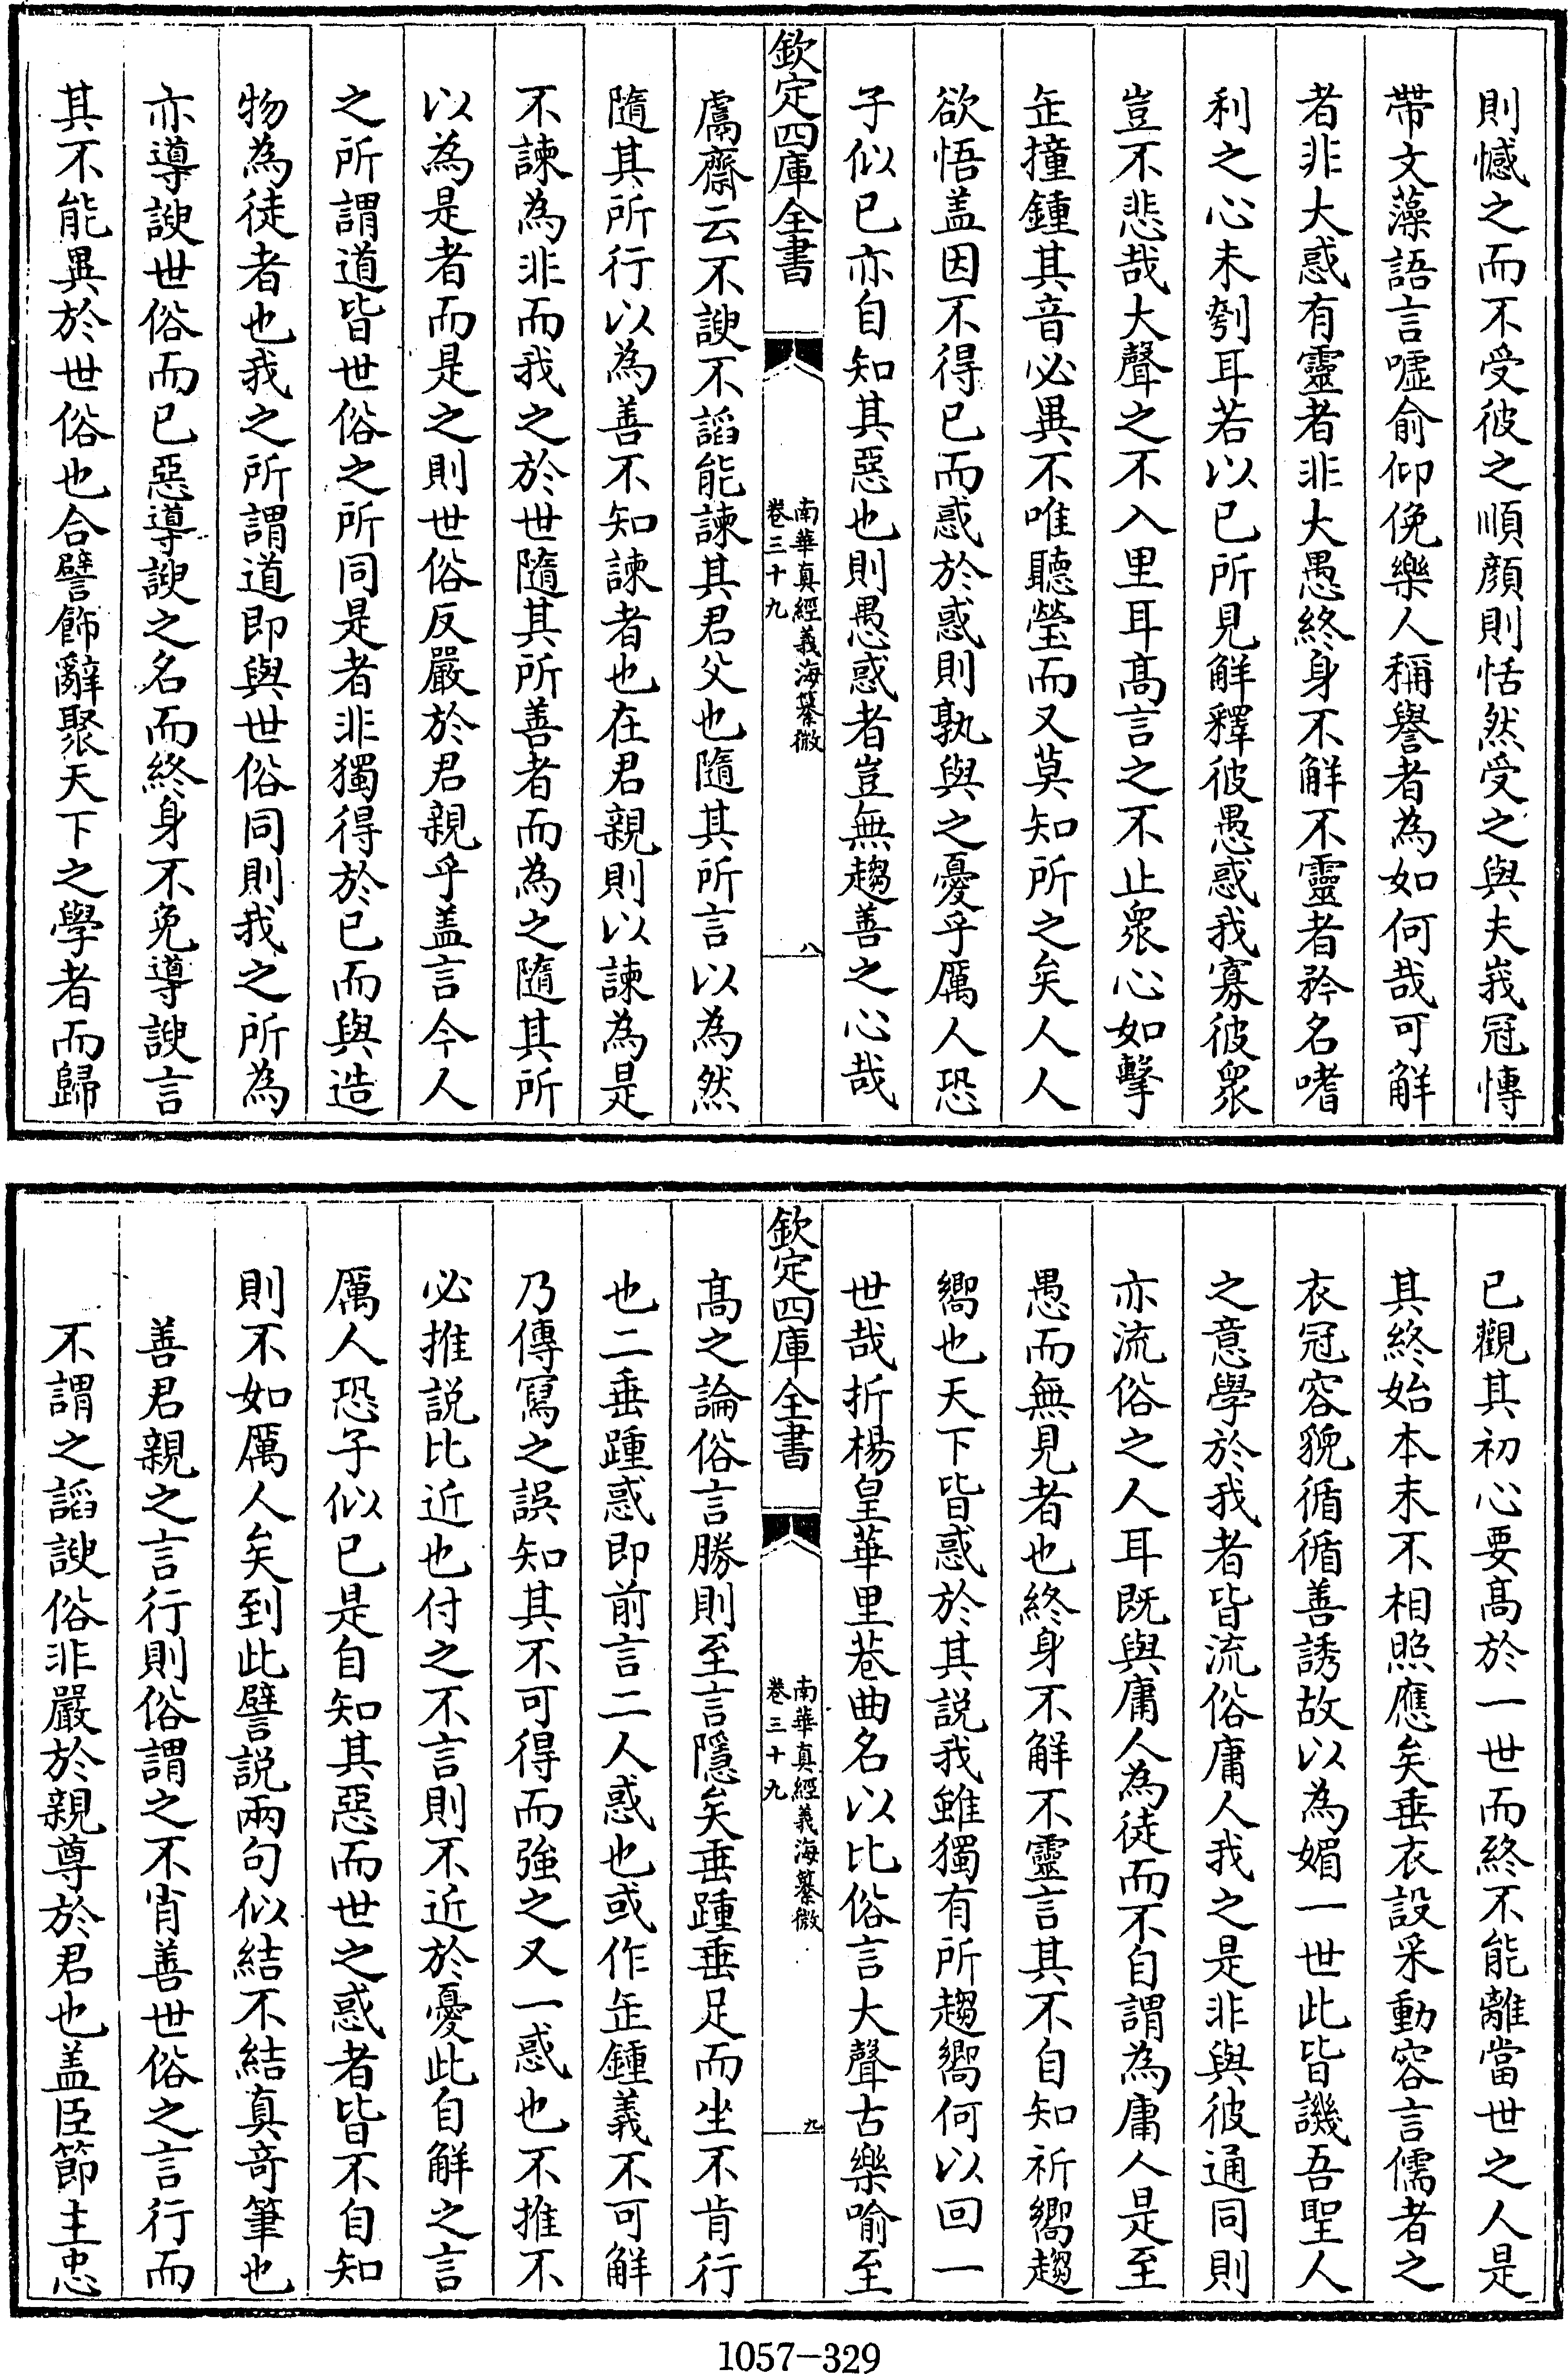 則憾之而不受彼之順顔則恬然受之與夫峩冠慱
帶文藻語言噓俞仰俛樂人稱譽者為如何哉可解
者非大惑有靈者非大愚終身不解不靈者矜名嗜
利之心未刳耳若以已所見解釋彼愚惑我寡彼衆
豈不悲哉大聲之不入里耳髙言之不止衆心如擊
缶撞鍾其音必異不唯聽瑩而又莫知所之矣人人
欲悟盖因不得已而惑於惑則孰與之憂乎厲人恐
子似已亦自知其惡也則愚惑者豈無趨善之心哉
欽定四庫全書
南華真經義海纂微
卷三十九
八
鬳齋云不諛不謟能諫其君父也隨其所言以為然
隨其所行以為善不知諫者也在君親則以諫為是
不諫為非而我之於世隨其所善者而為之隨其所
以為是者而是之則世俗反嚴於君親乎盖言今人
之所謂道皆世俗之所同是者非獨得於已而與造
物為徒者也我之所謂道即與世俗同則我之所為
亦導諛世俗而已惡導諛之名而終身不免導諛言
其不能異於世俗也合譬飾辭聚天下之學者而歸
已觀其初心要髙於一世而終不能離當世之人是
其終始本末不相照應矣垂衣設采動容言儒者之
衣冠容貌循循善誘故以為媚一世此皆譏吾聖人
之意學於我者皆流俗庸人我之是非與彼通同則
亦流俗之人耳既與庸人為徒而不自謂為庸人是至
愚而無見者也終身不解不靈言其不自知祈嚮趨
嚮也天下皆惑於其説我雖獨有所趨嚮何以回一
世哉折楊皇華里巷曲名以比俗言大聲古樂喻至
欽定四庫全書
南華真經義海纂微
卷三十九
九
髙之論俗言勝則至言隱矣垂踵垂足而坐不肯行
也二垂踵惑即前言二人惑也或作缶鍾義不可解
乃傳寫之誤知其不可得而強之又一惑也不推不
必推説比近也付之不言則不近於憂此自解之言
厲人恐子似已是自知其惡而世之惑者皆不自知
則不如厲人矣到此譬説兩句似結不結真竒筆也
善君親之言行則俗謂之不肖善世俗之言行而
不謂之謟諛俗非嚴於親尊於君也盖臣節主忠
1057-329